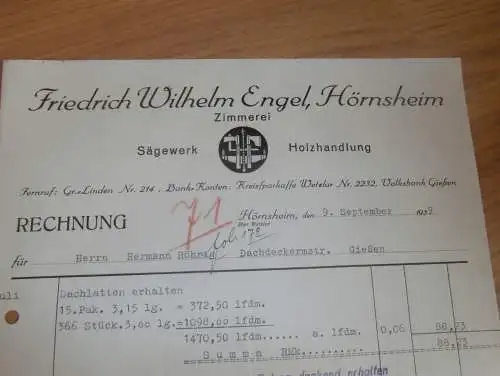 Friedrich Wilhelm Engel, Hörnsheim
Zimmerei
Sägewerk Holzhandlung
Fernruf: Gr.=Linden Nr. 214 : Bank=Konten: Kreissparkasse Wetzlar Nr. 2232, Volksbank Gießen
RECHNUNG
71
Hörnsheim, den 9. September 1939
über Wetzlar
für Herrn Hermann Dachdeckermstr. Gießen
uli Dachlatten erhalten
15.Pak. 3,15 lg. = 372,50 lfdm.
366 Stück.3,00 lg.=1098,00 lfdm.
1470,50 lfdm...... a. lfdm. 0,06 88,23
S u m m a RMk.......... 88,23
dankend erhalten